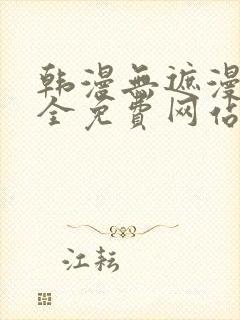 韩漫無遮漫
全免費网站
江耘